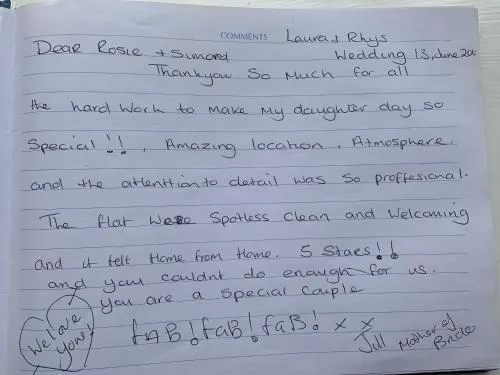 COMMENTS Laura + Rhys
Dear Rosie + Simond Wedding 13, June 20
Thankyou So Much for all
the hard work to make My daughter day so
Special!! , Amazing location, Atmosphere.
and the attenttion to detail was so proffesional.
The flat Were Spotless Clean and Welcoming
and it felt Home from Home. 5 Staes!!
and you couldnt do enough for us.
you are a special Couple
We love
you!
fAB! faB! faB! x x
Jill Mother of
Bride